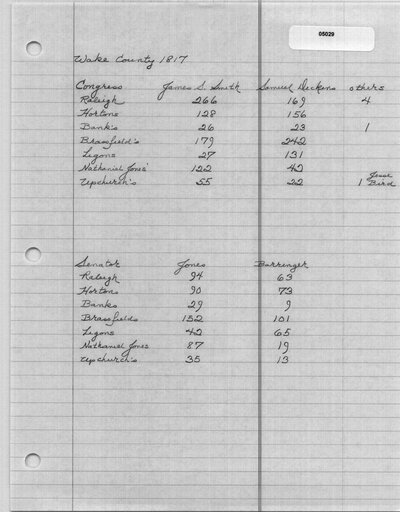 05029
Wake County 1817
Congress James S. Smith Samuel Dickens others
Raleigh 266 169 4
Hortons 128 156
Bank's 26 23 1
Brassfield's 179 242
Ligons 27 131
Nathaniel Jones' 122 42
Upchurch's 55 22 1 Jesse Bird
Senator Jones Barringer
Raleigh 94 63
Hortons 90 73
Banks 29 9
Brassfields 132 101
Ligons 42 65
Nathaniel Jones 87 19
Upchurch's 35 13